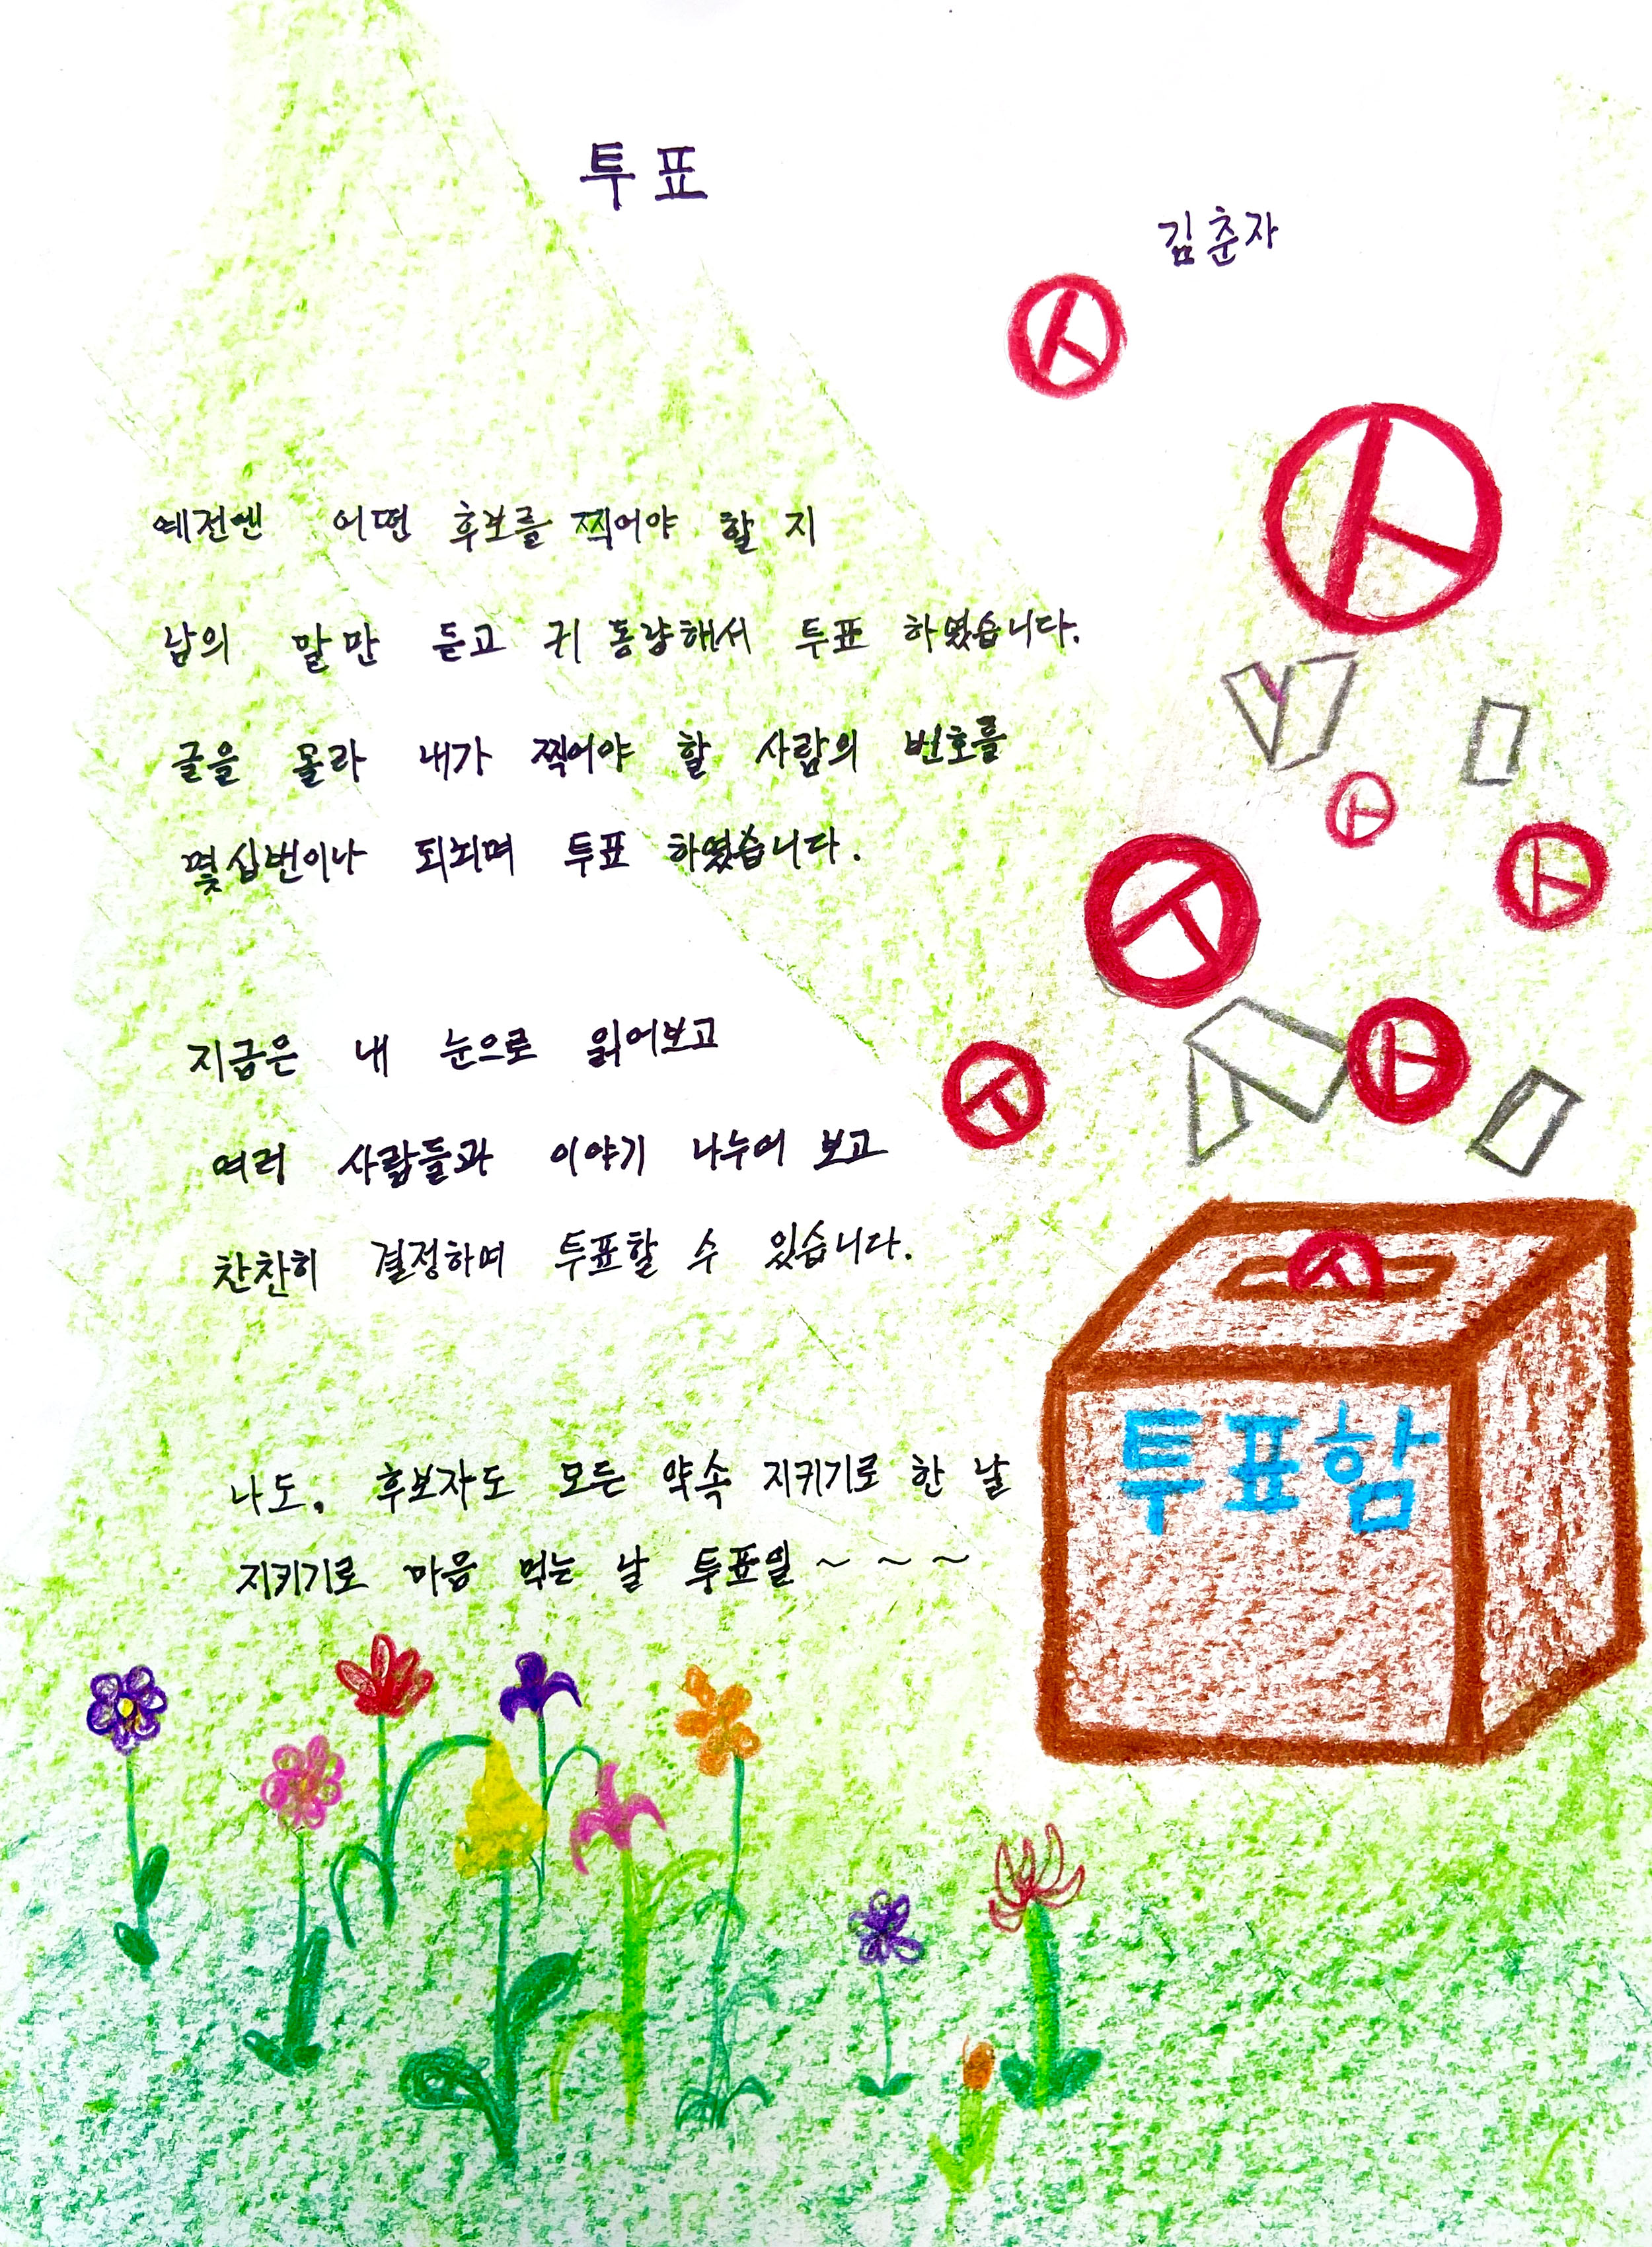 투표
김춘자
예전엔 어떤 후보를 찍어야 할 지
남의 말만 듣고 귀 동량해서 투표 하였습니다.
글을 몰라 내가 찍어야 할 사람의 번호를
몇십번이나 되뇌며 투표 하였습니다.
지금은 내 눈으로 읽어보고
여러 사람들과 이야기 나누어 보고
찬찬히 결정하며 투표할 수 있습니다.
투표함
나도, 후보자도 모든 약속 지키기로 한 날
지키기로 마음 먹는 날 투표일~ ~ ~